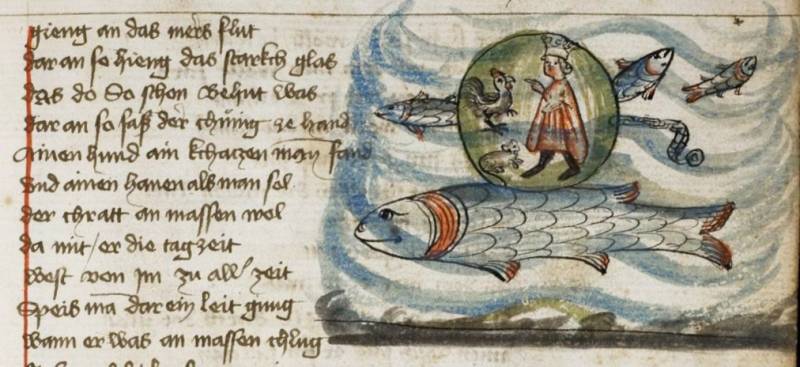 gieng an das mers flut
dar an so hieng das starkch glas
das do So schon behut was
dar an so saß der chünig ze hand
Ainen hund ain kchaczen man fand
vnd ainen hanen als man sol
der chratt an massen wol
da mit / er die tagzeit
west von im zu all zeit
Speis man dar ein leit genug
wann er was an massen chlug